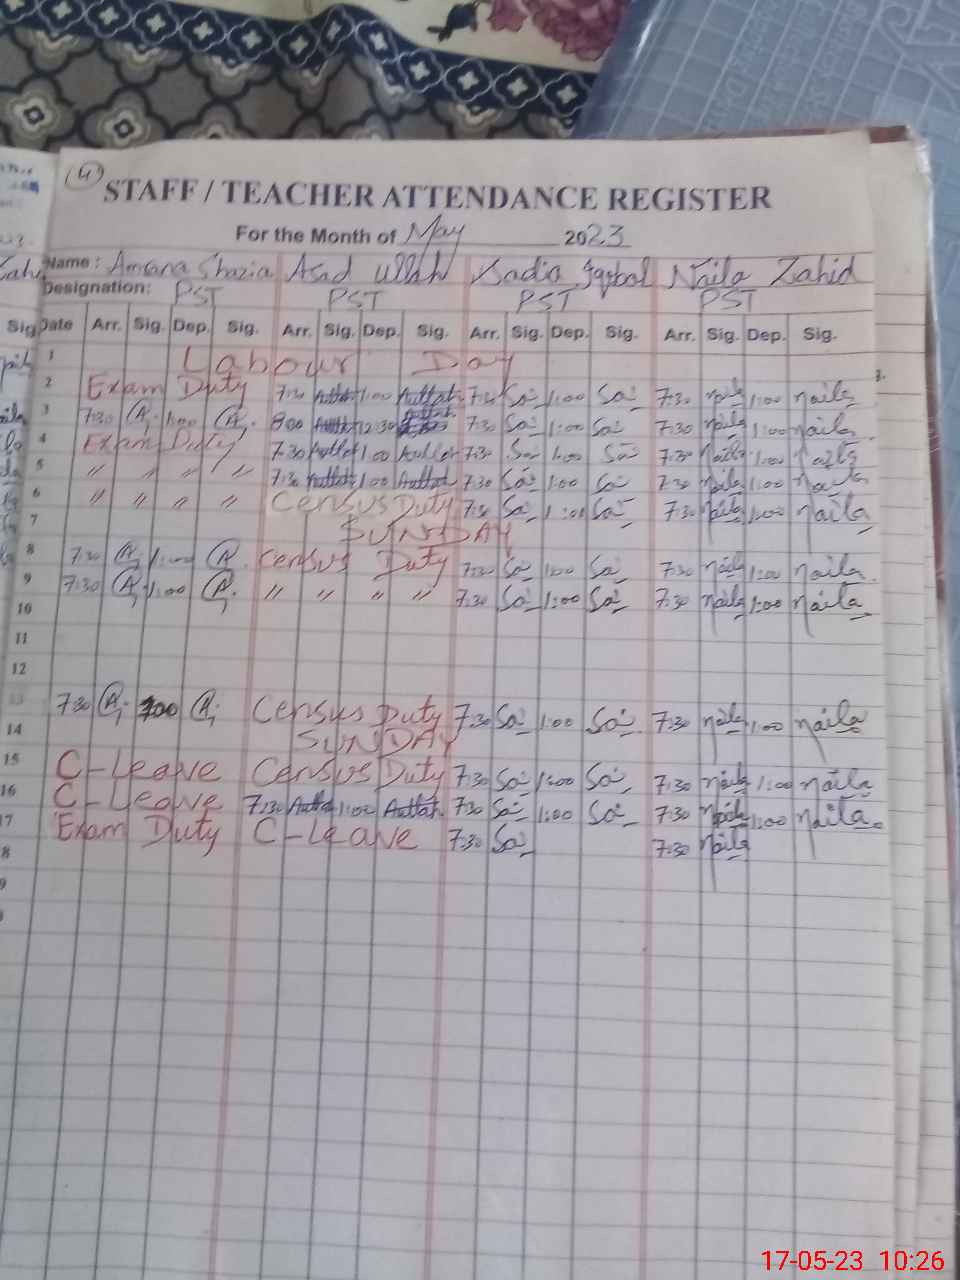 4
STAFF / TEACHER ATTENDANCE REGISTER
For the Month of May 2023
Name : Amana Shazia Asad Ullah Sadia Iqbal Naila Zahid
Designation: PST PST PST PST
Date Arr. Sig. Dep. Sig. Arr. Sig. Dep. Sig. Arr. Sig. Dep. Sig. Arr. Sig. Dep. Sig.
1 Labour Day
2 Exam Duty 7:30 1:00 7:30 Sa 1:00 Sa 7:30 naila 1:00 naila
3 7:30 A 1:00 A. 800 12:30 7:30 Sa 1:00 Sa 7:30 naila 1:00 naila
4 Exam Duty 7:30 1:00 7:30 Sa 1:00 Sa 7:30 naila 1:00 naila
5 " " " " 7:30 1:00 7:30 Sa 1:00 Sa 7:30 naila 1:00 naila
6 " " " " Census Duty 7:30 Sa 1:00 Sa 7:30 naila 1:00 naila
7 SUNDAY
8 7:30 A 1:00 A. Census Duty 7:30 Sa 1:00 Sa 7:30 naila 1:00 naila
9 7:30 A 1:00 A. " " " " 7:30 Sa 1:00 Sa 7:30 naila 1:00 naila
10
11
12
13 7:30 A 100 A Census Duty 7:30 Sa 1:00 Sa 7:30 naila 1:00 naila
14 SUNDAY
15 C-Leave Census Duty 7:30 Sa 1:00 Sa 7:30 naila 1:00 naila
16 C-Leave 7:30 1:00 7:30 Sa 1:00 Sa 7:30 naila 1:00 naila
17 Exam Duty C-Leave 7:30 Sa 7:30 naila
8
9
17-05-23 10:26